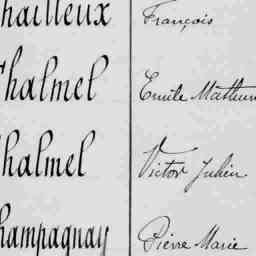 hailleux François
Chalmel Emile Mathurin
Chalmel Victor Julien
Champagnay Pierre Marie